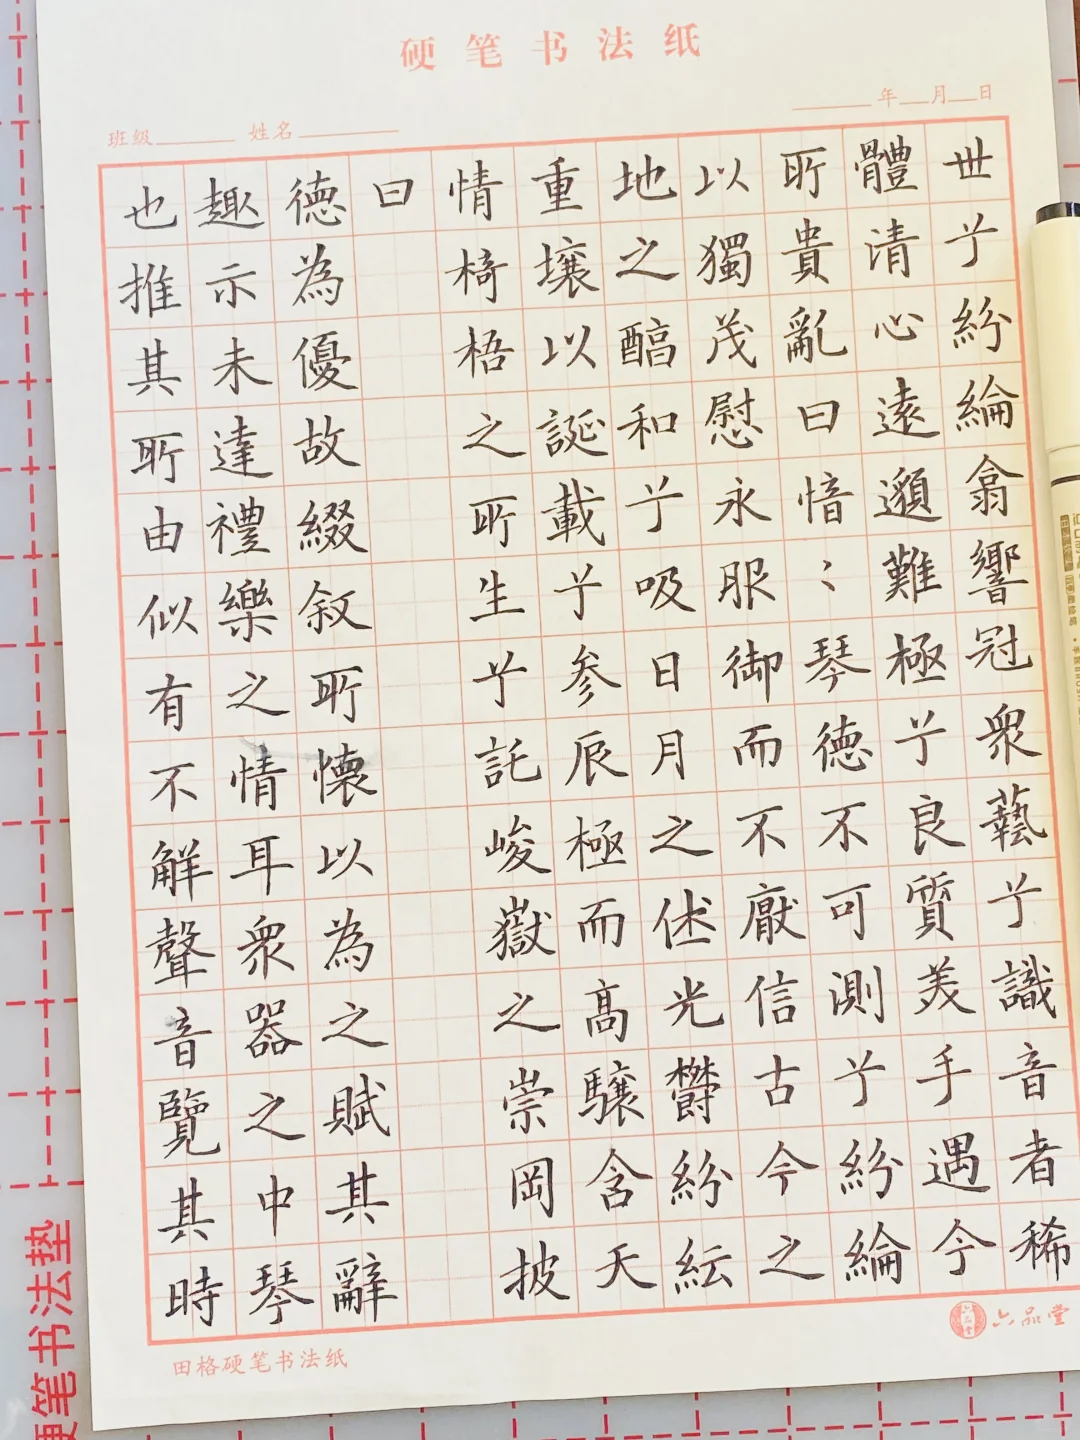 硬笔书法纸
年 月 日
班级 姓名
也推其所由似有不解聲音覽其時
趣示未達禮樂之情耳衆器之中琴
德為優故綴叙所懷以為之賦其辭
曰
情椅梧之所生兮託峻嶽之崇岡披
重壤以誕載兮參辰極而高驤含天
地之醕和兮吸日月之休光鬱紛紜
以獨茂慰永服御而不厭信古今之
所貴亂曰愔：琴德不可測兮紛綸
體清心遠邈難極兮良質美手遇今
世兮紛綸翕響冠衆藝兮識音者稀
田格硬笔书法纸
六品堂
硬笔书法垫